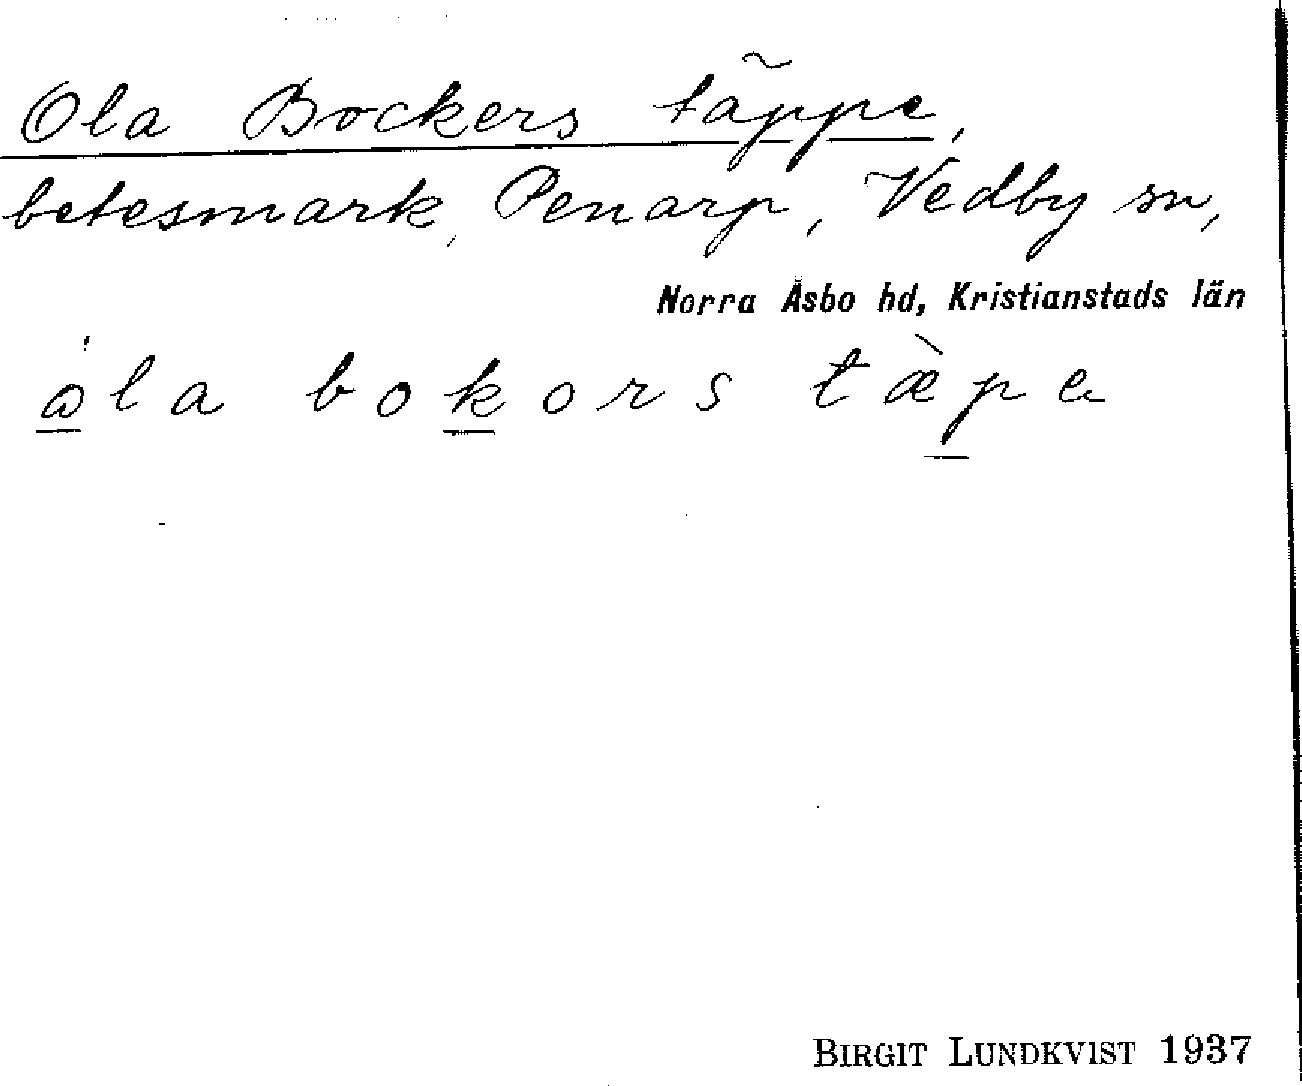 Ola Bockers täppe,
betesmark, Penarp, Vedby sn,
Norra Åsbo hd, Kristianstads län
ωla bokors tæ̀pe
BIRGIT LUNDKVIST 1937